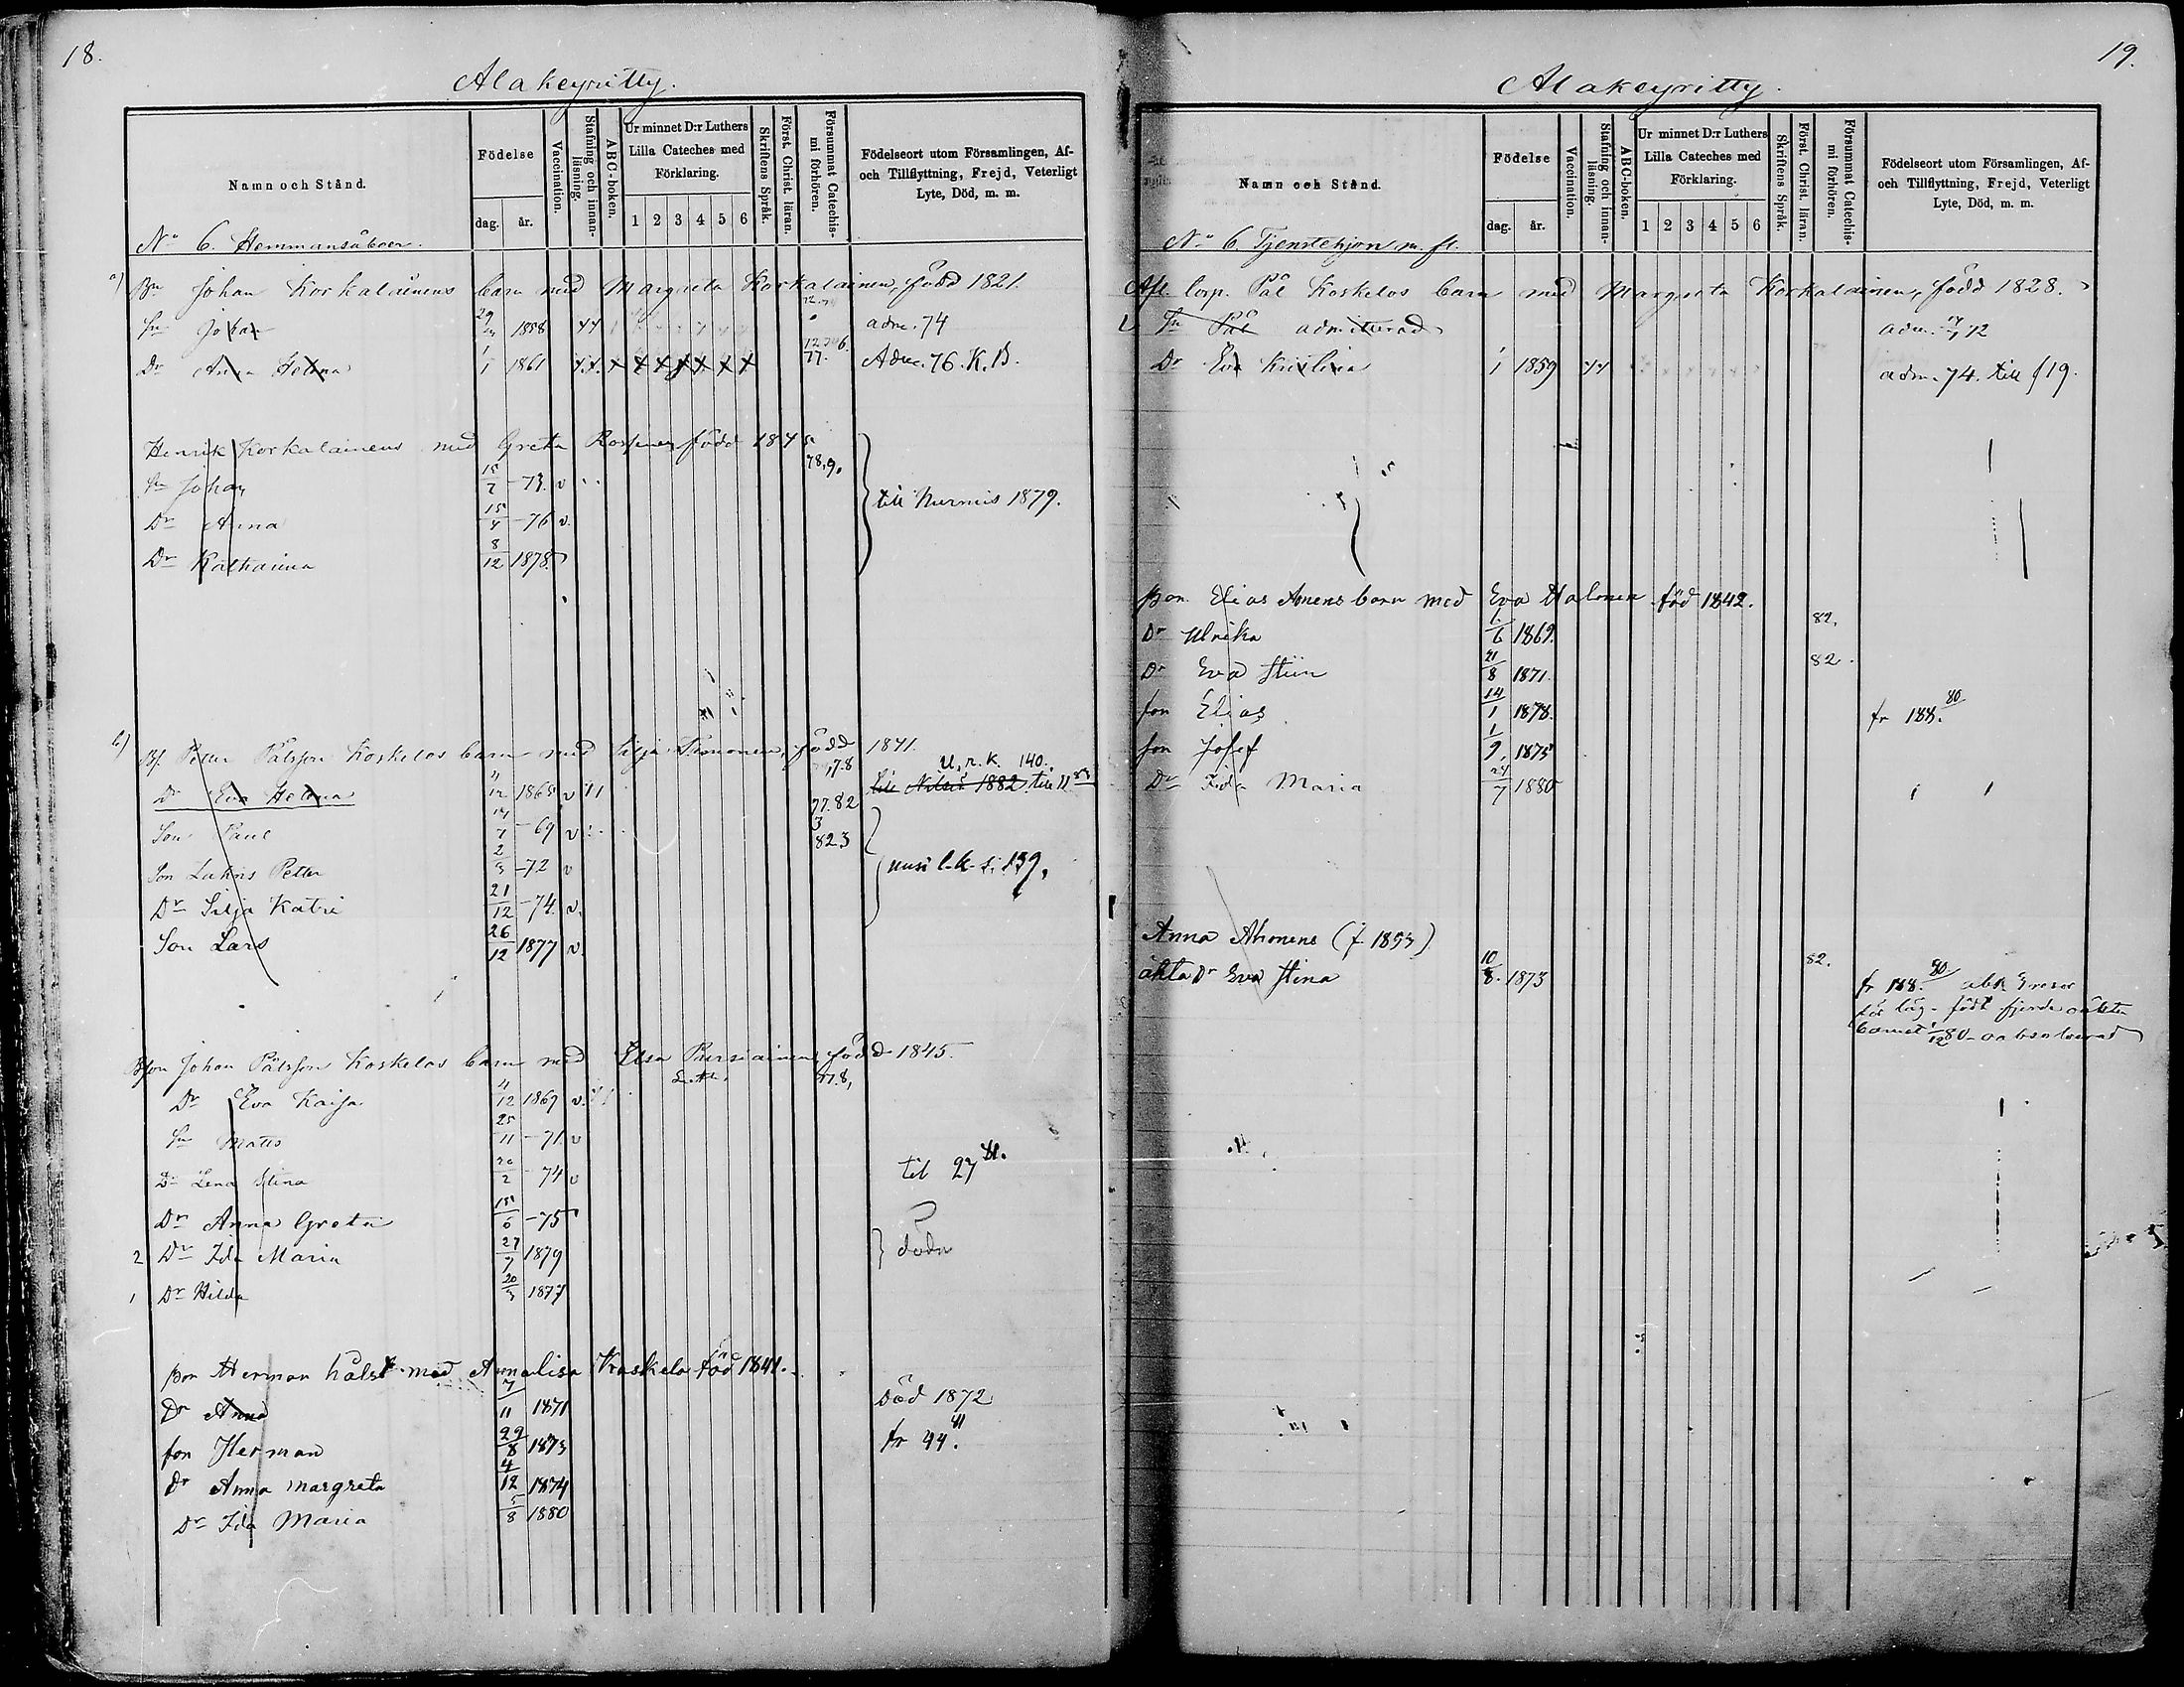 18.
Alakeyritty.
Namn och Stånd.
Födelse
dag. år.
Vaccination.
Stafning och innanläsning.
ABC-boken.
Ur minnet D:r Luthers Lilla Cateches med Förklaring.
1 2 3 4 5 6
Skriftens Språk.
Först. Christ. läran.
Försummat Catechismi förhören.
Födelseort utom Församlingen, Af- och Tillflyttning, Frejd, Veterligt Lyte, Död, m. m.
No 6. Hemmansåboer.
a) Bn Johan Korkalainens barn med Margreta Korkalainen, född 1821.
Sn Johan 29 1858 adm. 74
Dr Anna Helena 1/1 1861 x x x x x x x 77. Adm. 76. K. B.
Henrik Korkalainens med Greta född 1845
78,9.
Sn Johan 15/7 -73. v
Dr Anna 15/4 -76 v. till Nurmis 1879.
Dr Katharina 8/12 1878
b) Petter Pålsson Koskelos barn med Silja Timonen, född 1841.
7.8 U. n. K. 140.
Dr Eva Helena 1865 v till Nilsiä 1882. till 11
77.82
Son Paul 14/7 -69 v
3 823
Son Lukas Petter 2/9 -72 v uusi l.k. s. 139.
Dr Silja Katri 21/12 -74. v.
Son Lars 26/12 1877 v.
Johan Pålsson Koskelos barn med Elsa Pursiainen, född 1845.
77.8,
Dr Eva Kaisa 4/12 1869 v.
Sn Matts 25/11 -71. v
Dr Lena Stina 20/2 -74 v til 27 81.
Dr Anna Greta 15/6 -75
2 Dr Ida Maria 27/7 1879 döda
1 Dr Hilda 20/3 1877
Herman med Annalisa Koskelo föd 1841.
Dr Anna 7/11 1871 Död 1872
son Herman 29/8 1873 fr 44. 81
dr Anna Margreta 4/12 1874
Dr Ida Maria 5/8 1880
19.
Alakeyritty.
Namn och Stånd.
Födelse
dag. år.
Vaccination.
Stafning och innanläsning.
ABC-boken.
Ur minnet D:r Luthers Lilla Cateches med Förklaring.
1 2 3 4 5 6
Skriftens Språk.
Först. Christ. läran.
Försummat Catechismi förhören.
Födelseort utom Församlingen, Af- och Tillflyttning, Frejd, Veterligt Lyte, Död, m. m.
No 6. Tjenstehjon m. fl.
Afl. Corp. Pål Koskelos barn med Margreta Korkalainen, född 1828.
Sn Pål admitterad adm. 72
Dr Eva 1859 adm. 74. till f 19.
Elias barn med Eva Halonen föd 1842.
Dr Ulrika 1/6 1869. 82.
Dr Eva Stiin 21/8 1871. 82.
son Elias 14/1 1878. fr 188. 80
son Josef 1/9 1875
Dr Ida Maria 24/7 1880
Anna Ahonens (f. 1853)
Dr Eva Stina 10/8. 1873 82. fr 188. 80
född fjerde oäkta
barnet 1/12 80